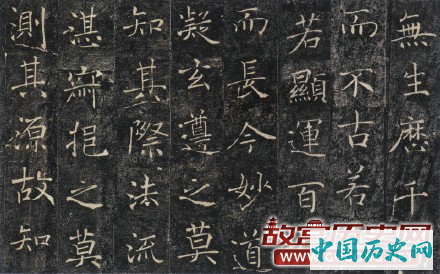 無生歷千
而不古若
若顯運百
而長今妙道
凝玄遵之莫
知其際法流
湛寂挹之莫
測其源故知
中国历史网